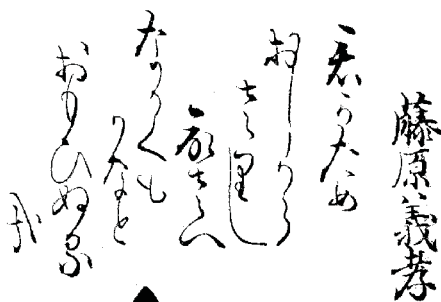 藤原義孝
君かため
おしから
さりし
命さへ
なかくも
かなと
おもひぬる
哉